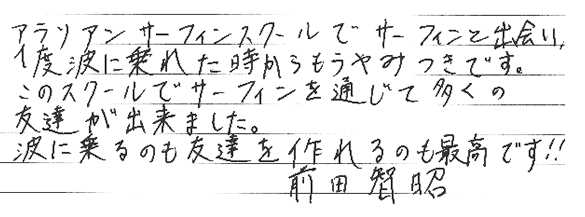 アラリアンサーフィンスクールでサーフィンと出会い、
1度波に乗れた時からもうやみつきです。
このスクールでサーフィンを通じて多くの
友達が出来ました。
波に乗るのも友達を作れるのも最高です!!
前田智昭